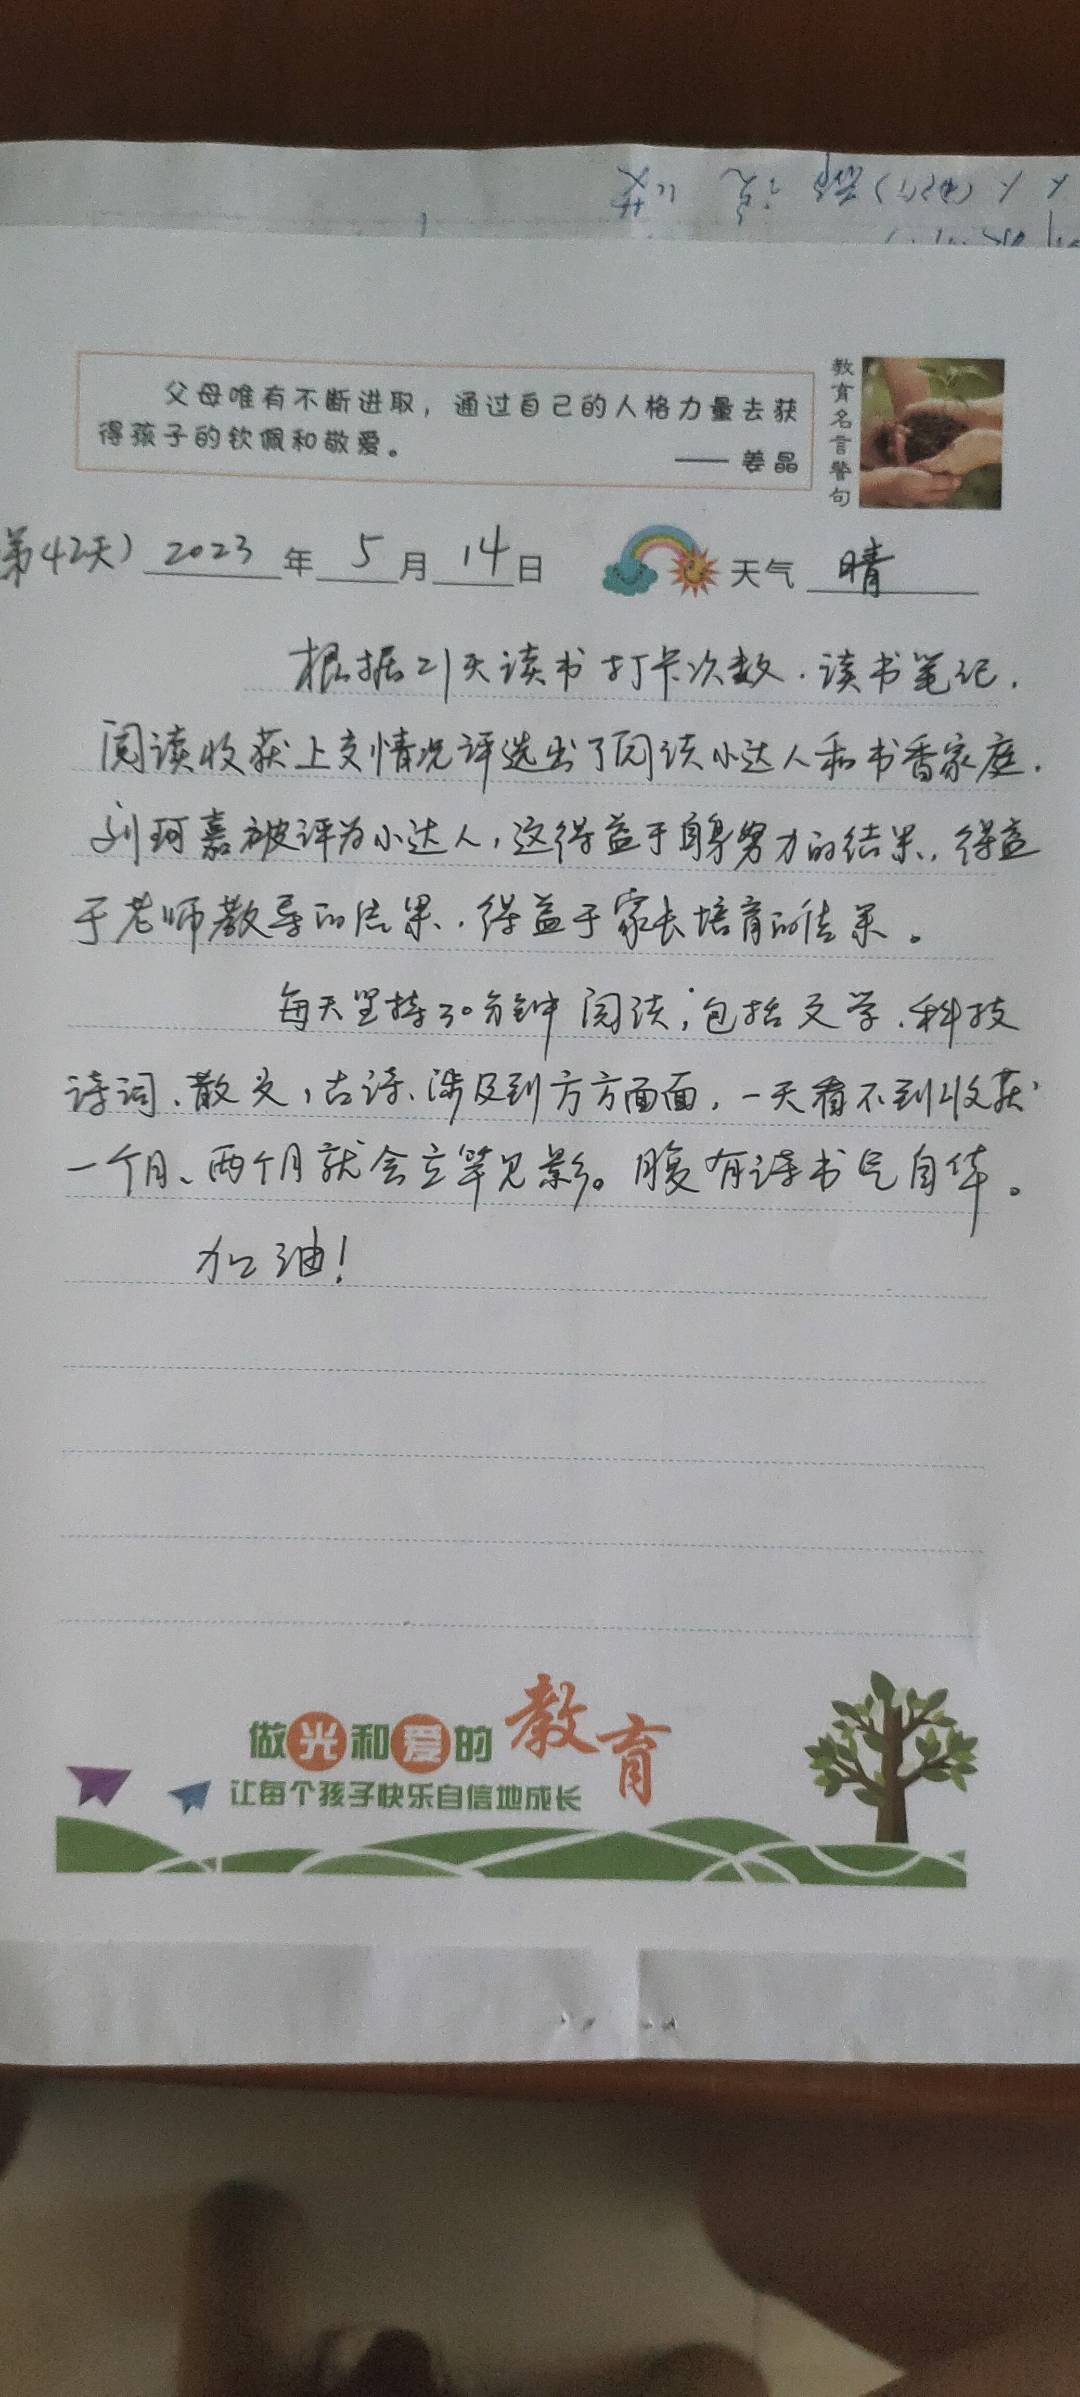 父母唯有不断进取，通过自己的人格力量去获
得孩子的钦佩和敬爱。
—— 姜晶
教育名言警句
第42天) 2023 年 5 月 14 日 天气 晴
根据21天读书打卡次数.读书笔记.
阅读收获上交情况评选出了阅读小达人和书香家庭.
刘珂嘉被评为小达人,这得益于自身努力的结果,得益
于老师教导的结果.得益于家长培育的结果。
每天坚持30分钟阅读,包括文学.科技
诗词、散文,古诗、涉及到方方面面,一天看不到收获
一个月、两个月就会立竿见影。腹有诗书气自华。
加油!
做光和爱的教育
让每个孩子快乐自信地成长